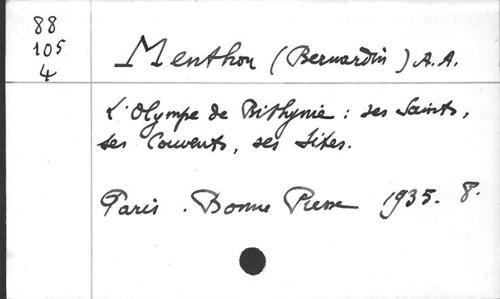 88
105
4
Menthon (Bernardin) A.A.
L'Olympe de Bithynie : ses Saints,
ses Couvents, ses Sites.
Paris . Bonne Presse 1935. 8.